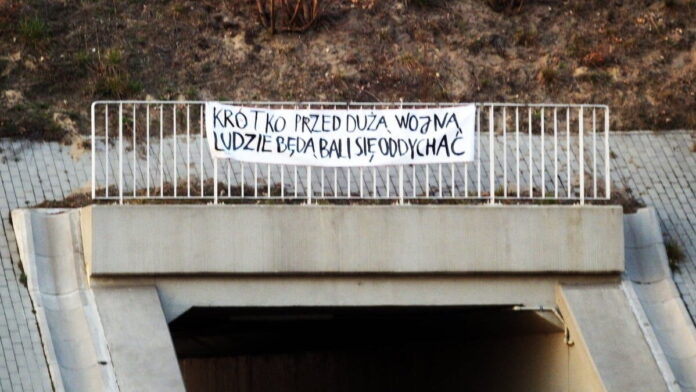 KRÓTKO PRZED DUŻĄ WOJNĄ
LUDZIE BĘDĄ BALI SIĘ ODDYCHAĆ